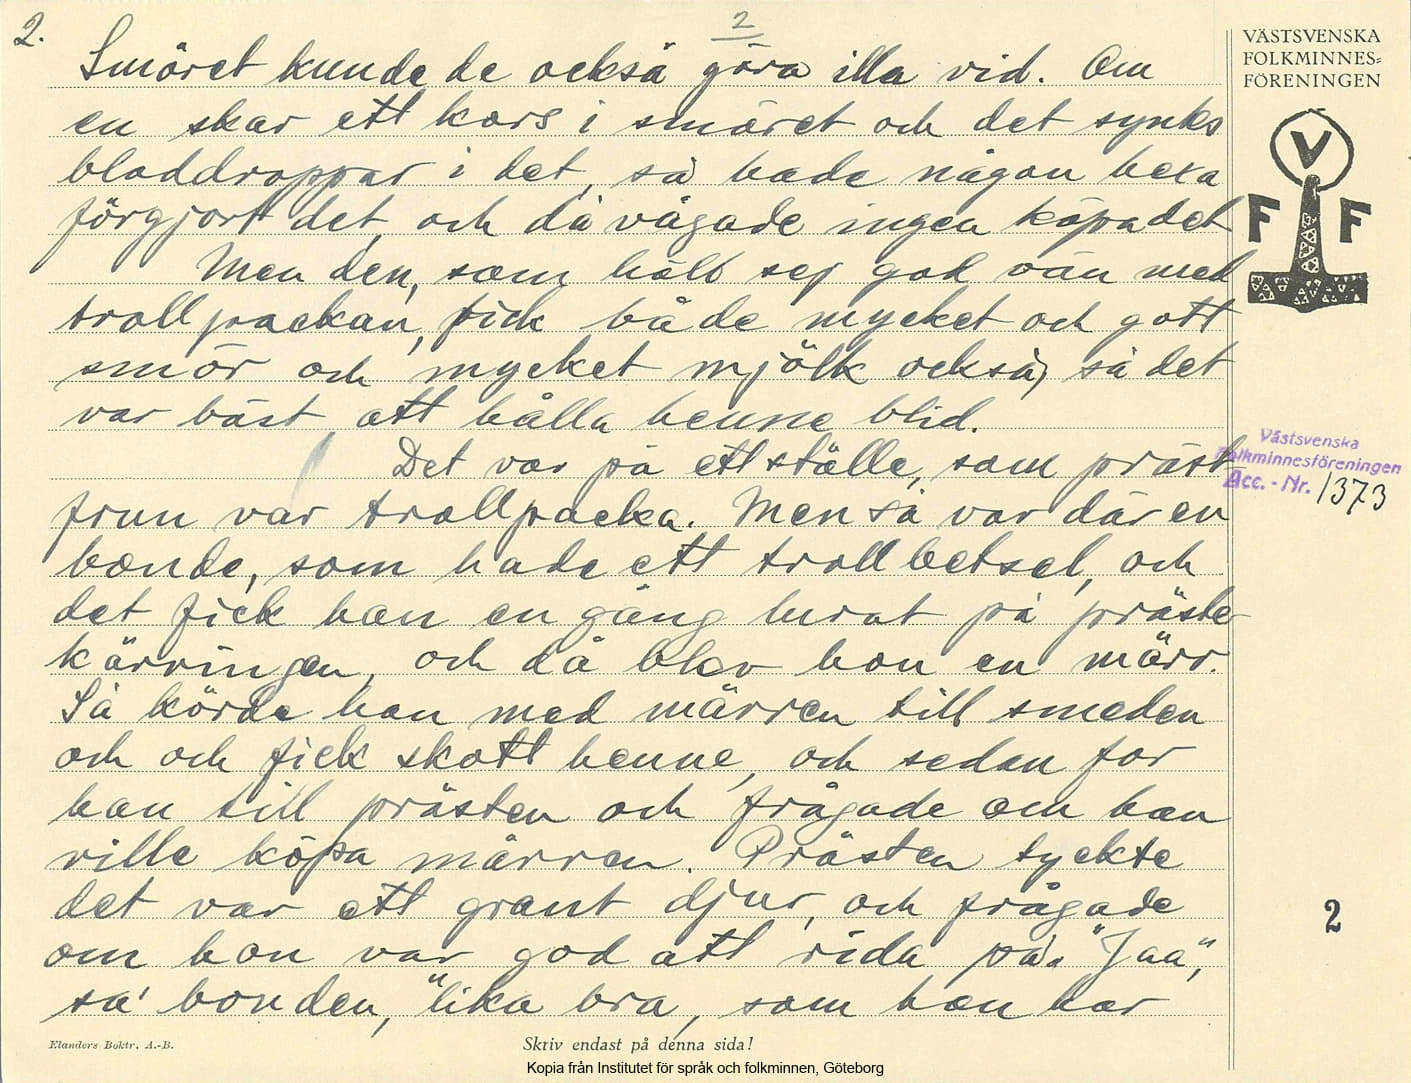 2.
2
Smöret kunde de också göra illa vid. Om
en skar ett kors i smöret och det synks
bloddroppar i det, så hade någon hexa
förgjort det, och då vågade ingen köpa det
Men den, som höll sej god vän med
trollpackan, fick både mycket och gott
smör och mycket mjölk också, så det
var bäst att hålla henne blid.
Det var på ett ställe, som präst-
frun var trollpacka. Men så var där en
bonde, som hade ett trollbetsel, och
det fick han en gång lurat på präste-
kärringen, och då blev hon en märr.
Så körde han med märren till smeden
och och fick skott henne, och sedan for
han till prästen och frågade om han
ville köpa märren. Prästen tyckte
det var ett grant djur, och frågade
om hon var god att rida på. "Jaa,"
sa' bonden, "lika bra, som han har
VÄSTSVENSKA
FOLKMINNES=
FÖRENINGEN
V
F F
Västsvenska
Folkminnesföreningen
Acc. - Nr. 1373
2
Elanders Boktr. A.-B.
Skriv endast på denna sida!
Kopia från Institutet för språk och folkminnen, Göteborg